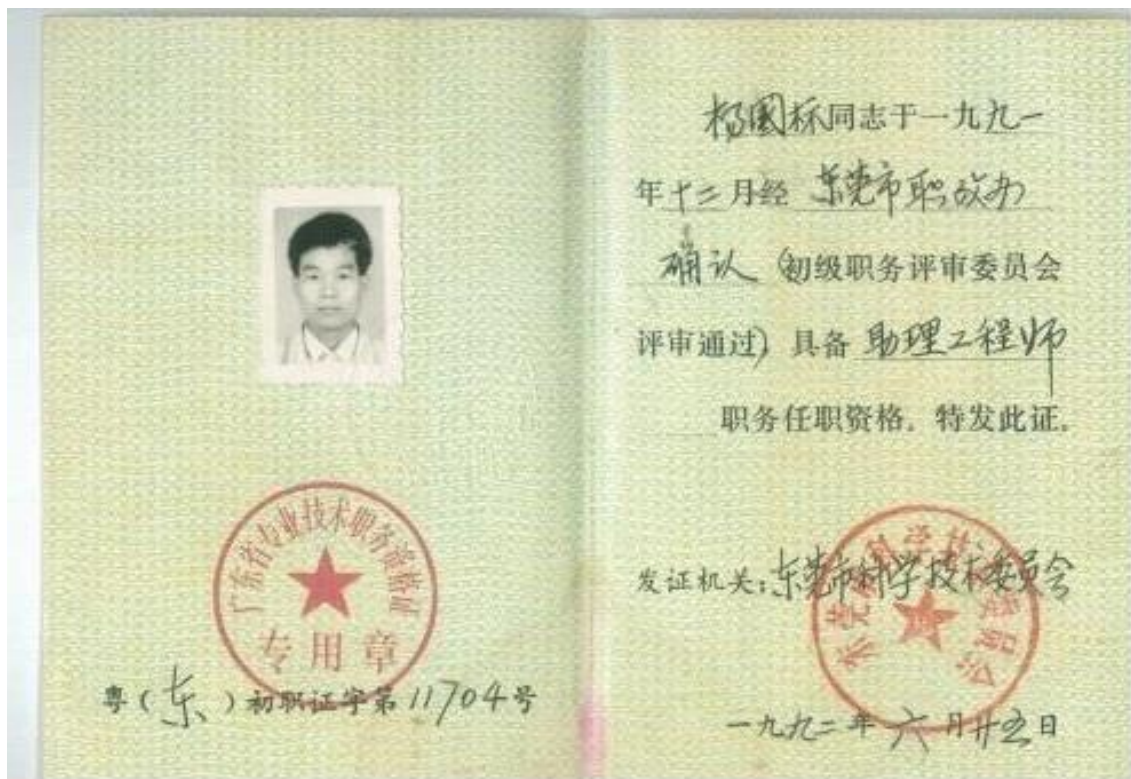 广东省专业技术职务资格证
专用章
粤(东)初职证字第11704号
杨国标同志于一九九一
年十二月经东莞市职改办
确认(初级职务评审委员会
评审通过)具备助理工程师
职务任职资格。特发此证。
发证机关:东莞市科学技术委员会
东莞市科学技术委员会
一九九二年六月廿五日